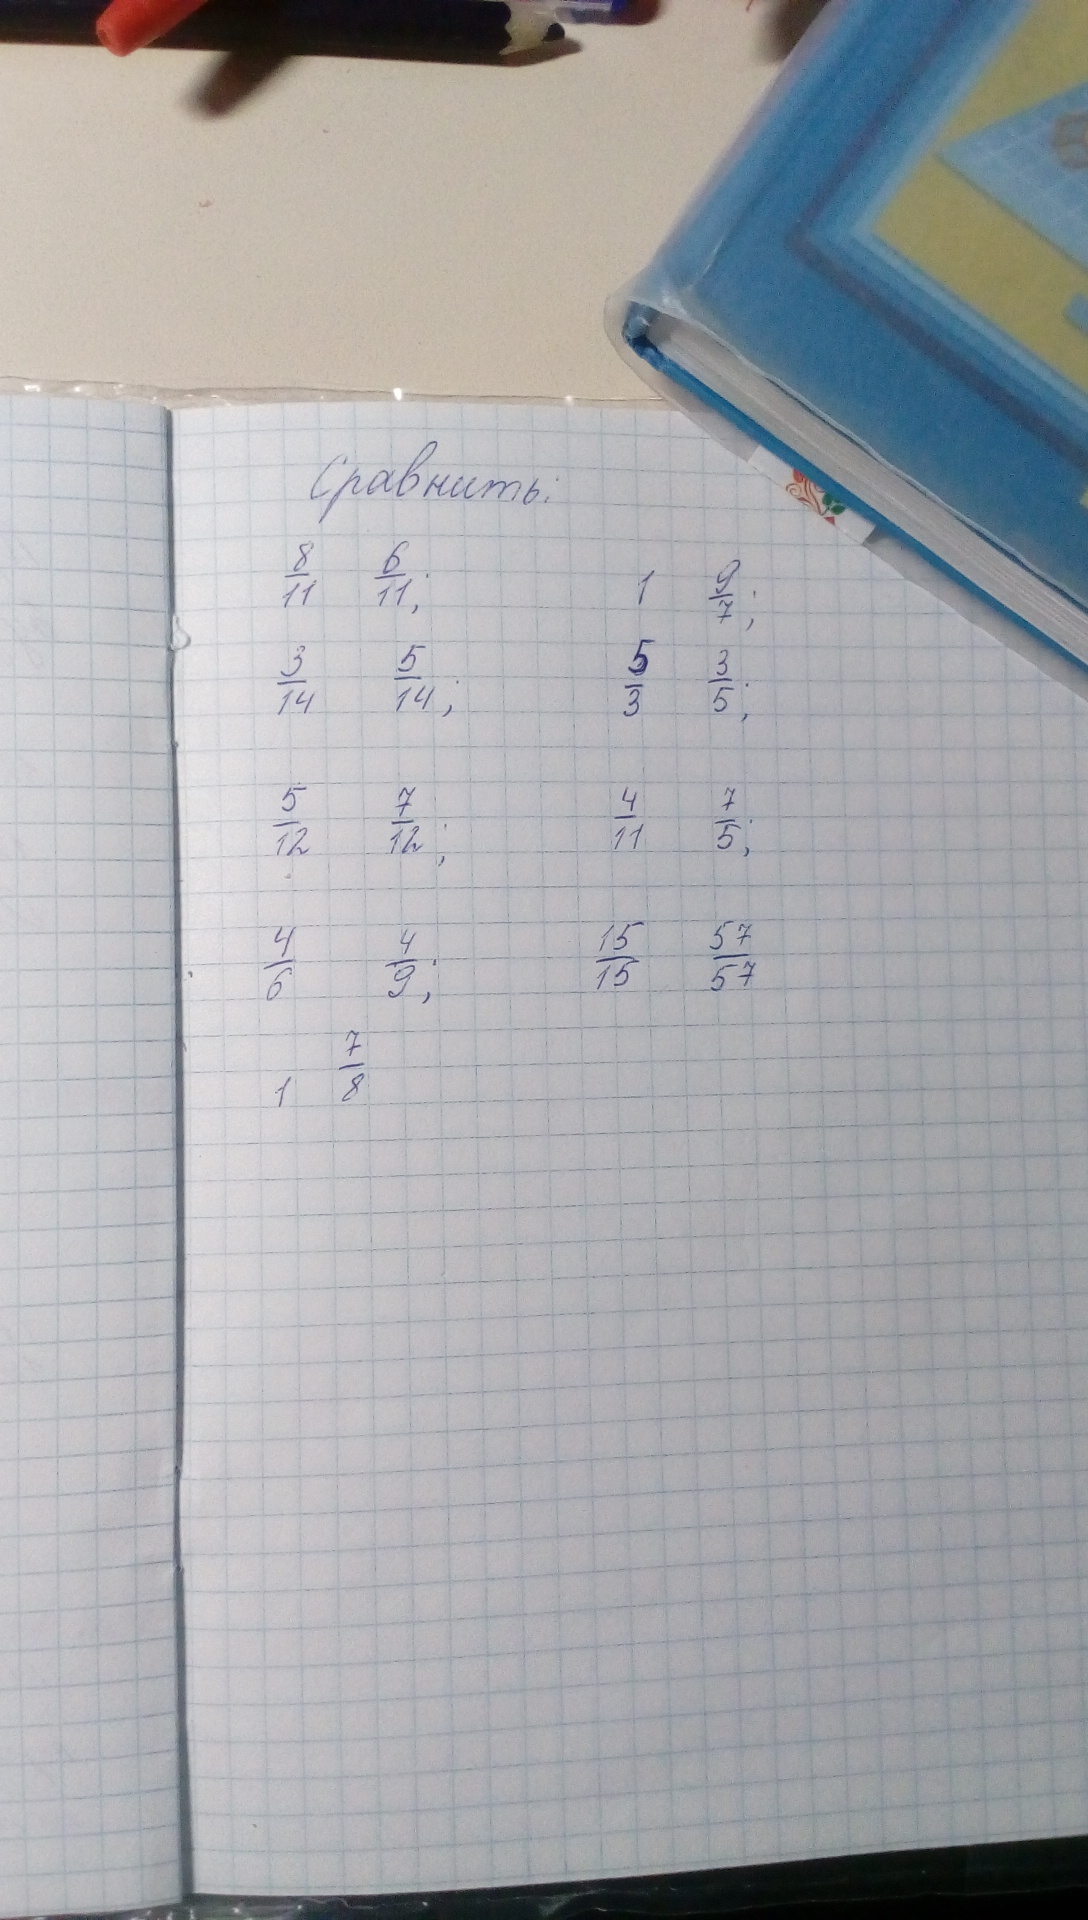 Сравнить:
8/11 6/11; 1 9/7;
3/14 5/14; 5/3 3/5;
5/12 7/12; 4/11 7/5;
4/6 4/9; 15/15 57/57
1 7/8
5